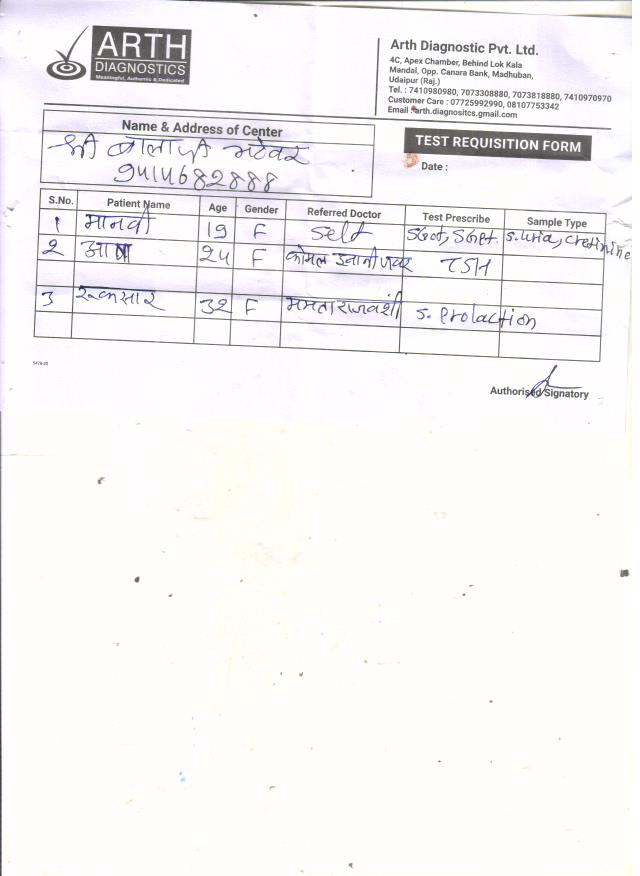 ARTH
DIAGNOSTICS
Meaningful, Authentic & Dedicated
Arth Diagnostic Pvt. Ltd.
4C, Apex Chamber, Behind Lok Kala
Mandal, Opp. Canara Bank, Madhuban,
Udaipur (Raj.)
Tel. : 7410980980, 7073308880, 7073818880, 7410970970
Customer Care : 07725992990, 08107753342
Email :arth.diagnositcs.gmail.com
Name & Address of Center
श्री बालाजी भटेवर
9414682888
TEST REQUISITION FORM
Date :
S.No. Patient Name Age Gender Referred Doctor Test Prescribe Sample Type
1 मानवी 19 F Self SGot, SGpt. S. Uria, Cretinine
2 24 F कोमल TSH
3 रुकसार 32 F ममता राजवंशी S. Prolaction
5476-20
Authorised Signatory